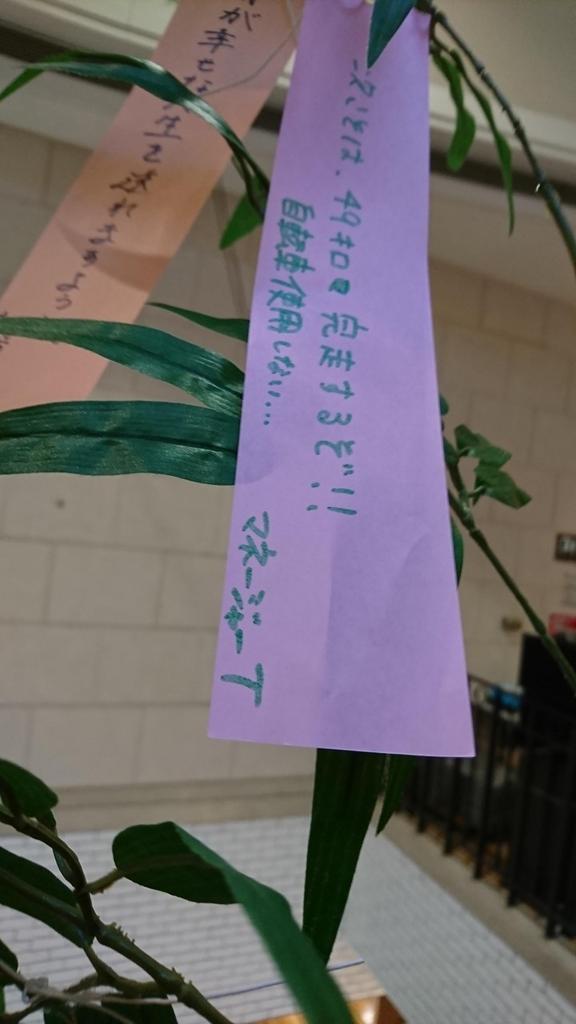 こんどは、49キロ完走するぞ!!
自転車使用しない…
マネージャーT
が幸せな人生を送れますように